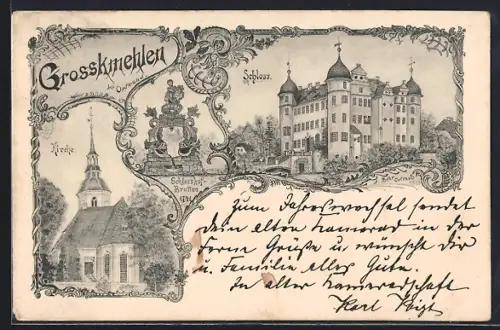 Grosskmehlen
bei Ortrand
Schloss.
Kirche
Schlosshof-
Brunnen
Zum Jahreswechsel sendet
Dein alter Kamerad in der
Ferne Grüße u. wünscht Dir
u. Familie alles Gute.
In alter Kameradschaft
Karl Voigt